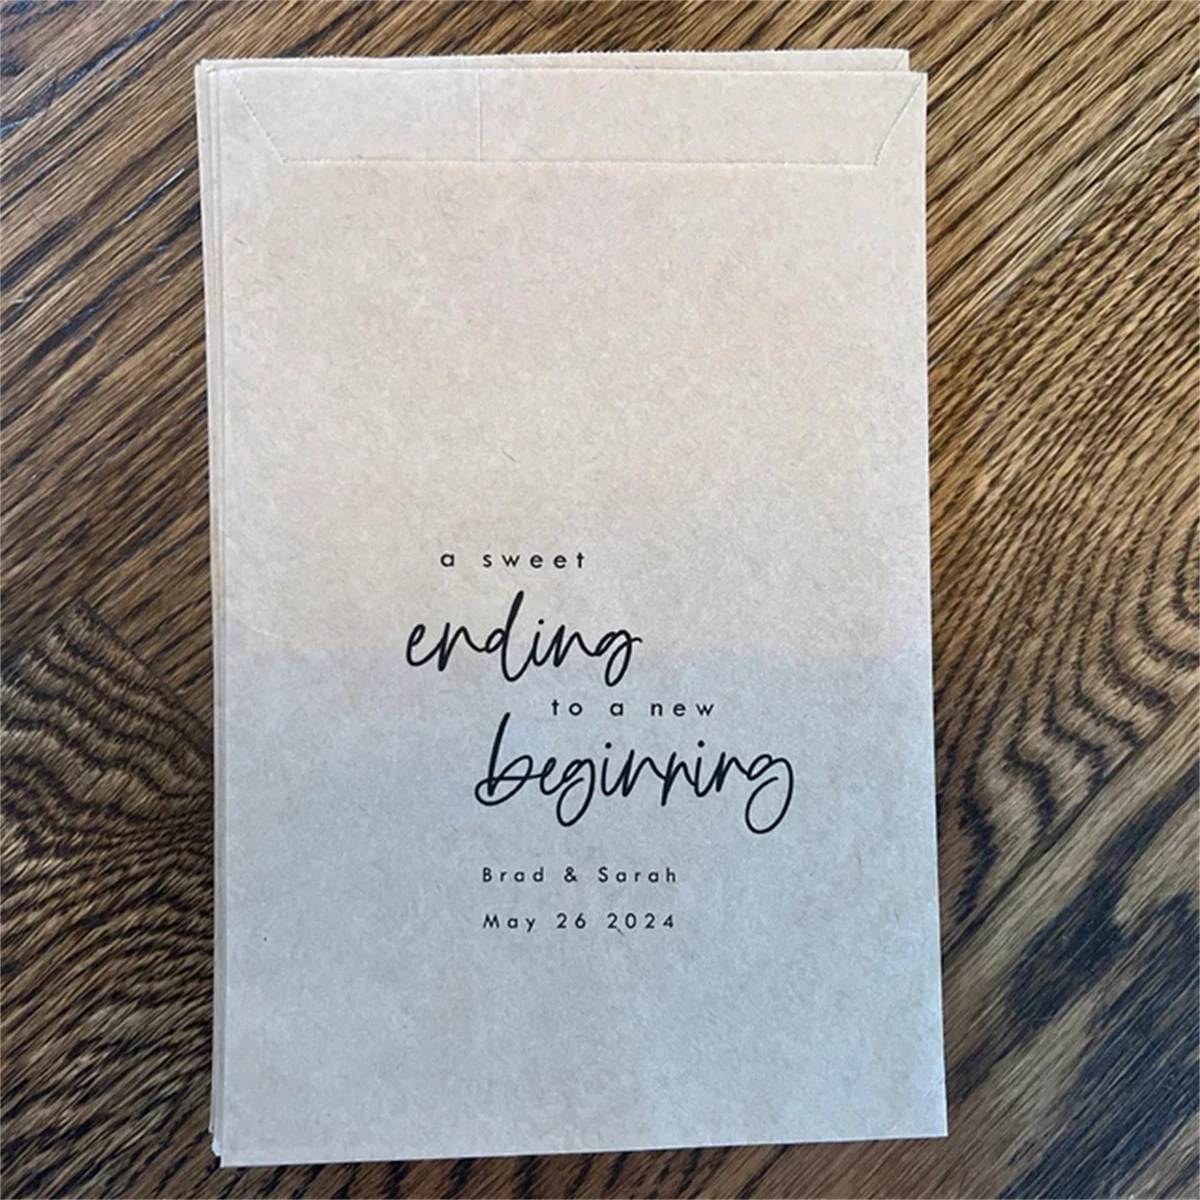 a sweet
ending
to a new
beginning
Brad & Sarah
May 26 2024